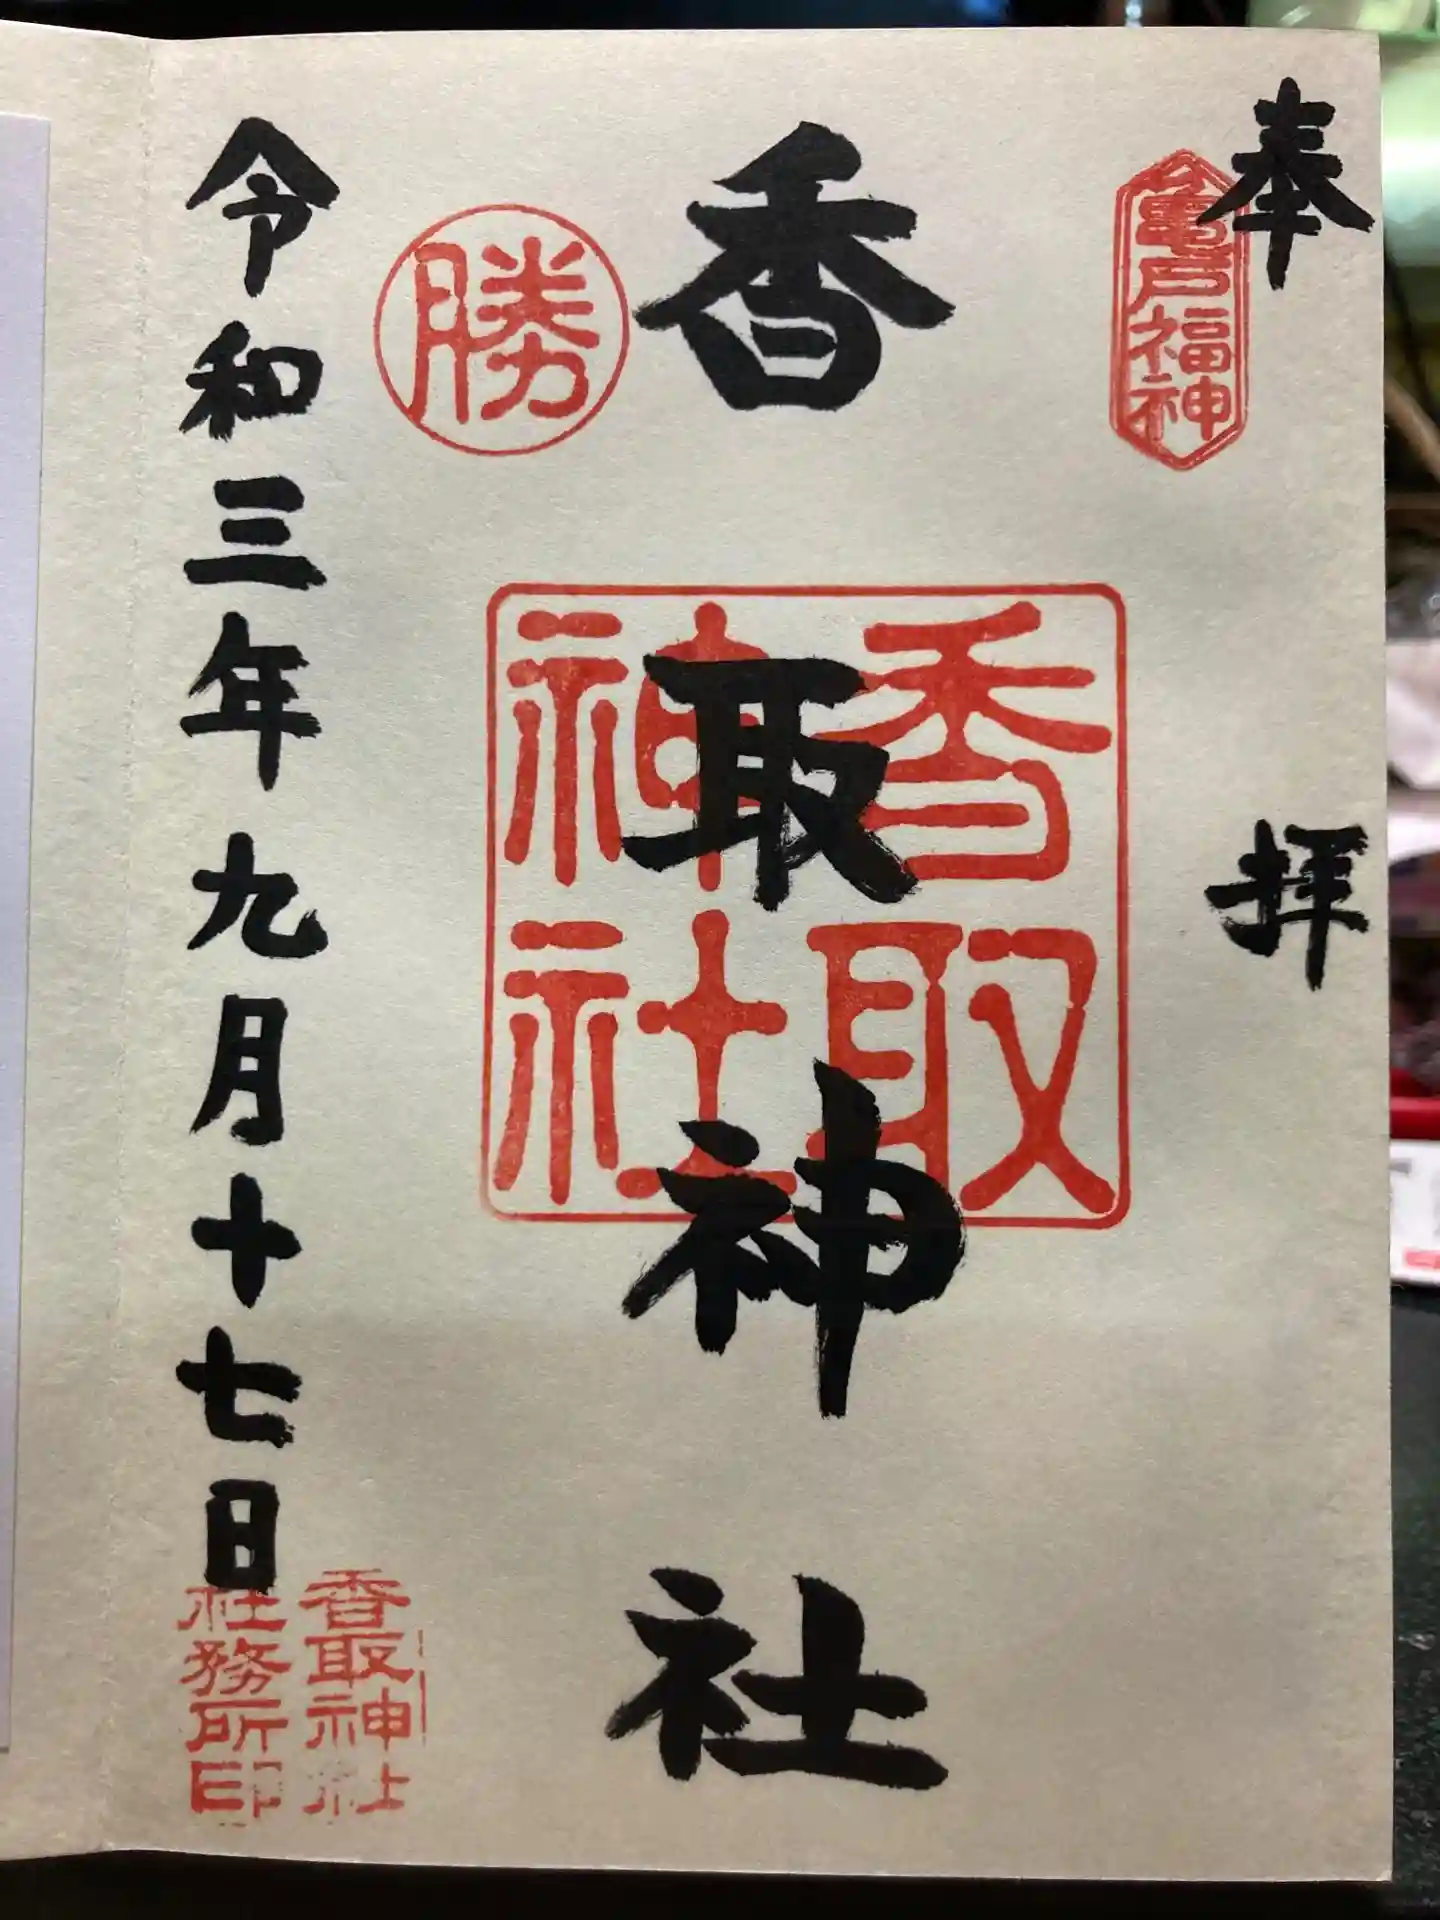 奉拝
亀戸福神
香取神社
香取神社
勝
令和三年九月十七日
香取神社
社務所印